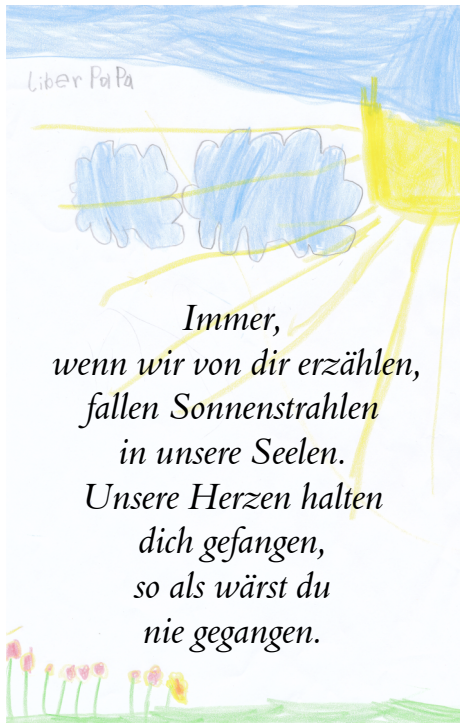 Liber PaPa
Immer,
wenn wir von dir erzählen,
fallen Sonnenstrahlen
in unsere Seelen.
Unsere Herzen halten
dich gefangen,
so als wärst du
nie gegangen.